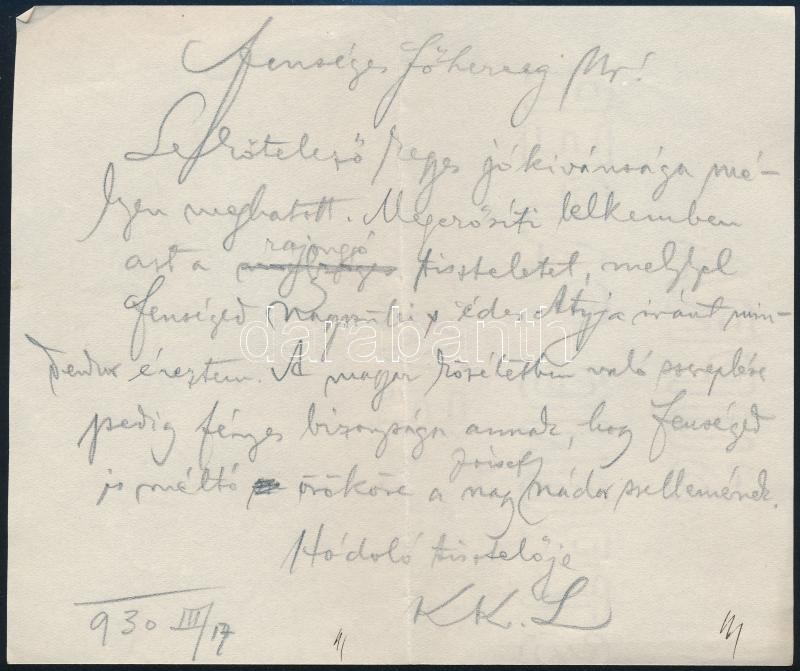 Fenséges Főherceg Úr!
Lekötelező kegyes jókivánsága mé-
lyen meghatott. Megerősíti lelkemben
azt a rajongó tiszteletet, melylyel
Fenséged édes Atyja iránt min-
denkor éreztem. A magyar közéletben való szereplése
pedig fényes bizonysága annak, hogy Fenséged
is méltó örököse a nagy József nádor szellemének.
Hódoló tisztelője
K K. L
930 III/17
darabanth